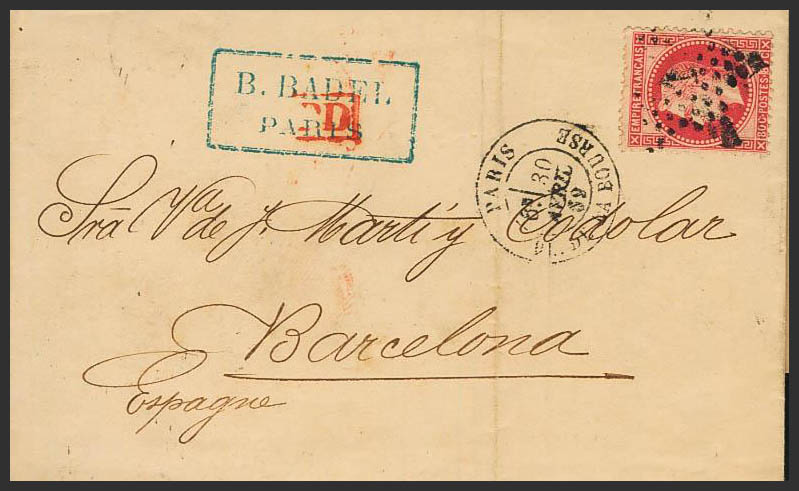 B. BADEL
PARIS
PD
EMPIRE FRANÇAIS
80C-POSTES-80C
PARIS
PL. DE LA BOURSE
30
AVRIL
69
Sra Vda de J. Martí y Codolar
Barcelona
Espagne